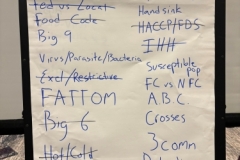 Fed vs Local
Food Code
Big 9
Virus/Parasite/Bacteria
Excl/Restrictive
FATTOM
Big 6
Hot/Cold
Handsink
HACCP/FDS
IHH
Susceptible
pop
FC vs NFC
A.B.C.
Crosses
3comn